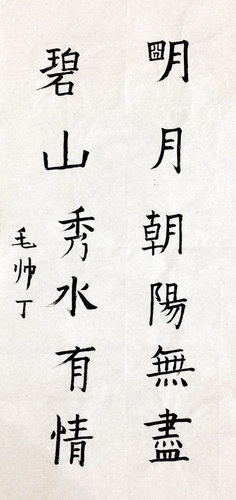 朙月朝陽無盡
碧山秀水有情
毛帅丁